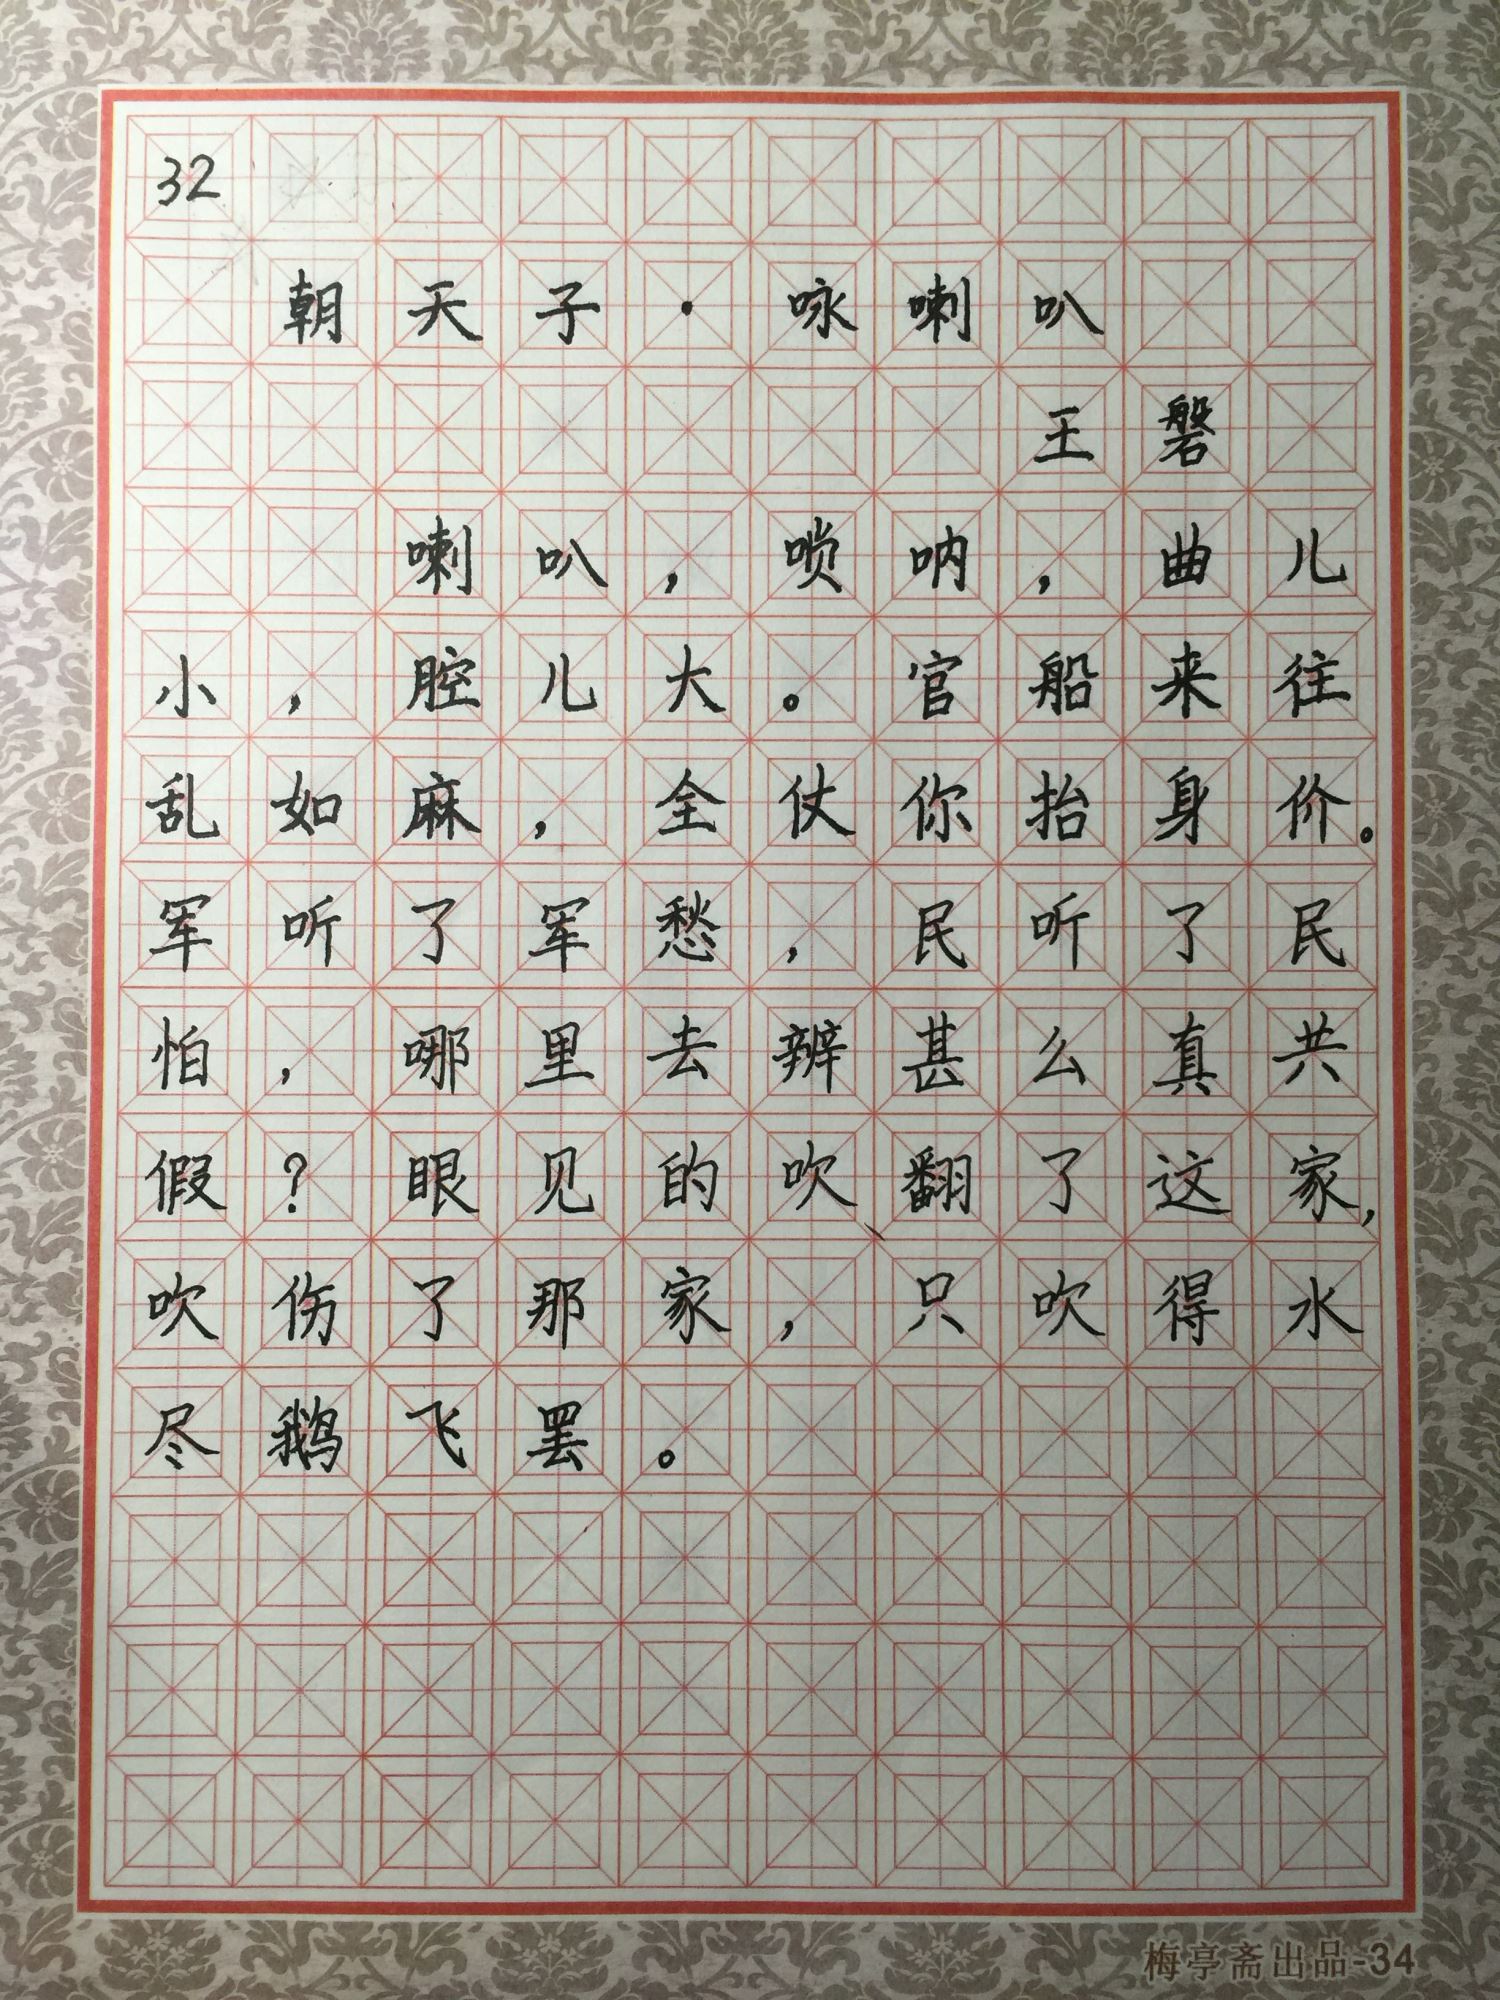 32
朝天子·咏喇叭
王磐
喇叭，唢呐，曲儿
小，腔儿大。官船来往
乱如麻，全仗你抬身价。
军听了军愁，民听了民
怕，哪里去辨甚么真共
假？眼见的吹翻了这家，
吹伤了那家，只吹得水
尽鹅飞罢。
梅亭斋出品-34